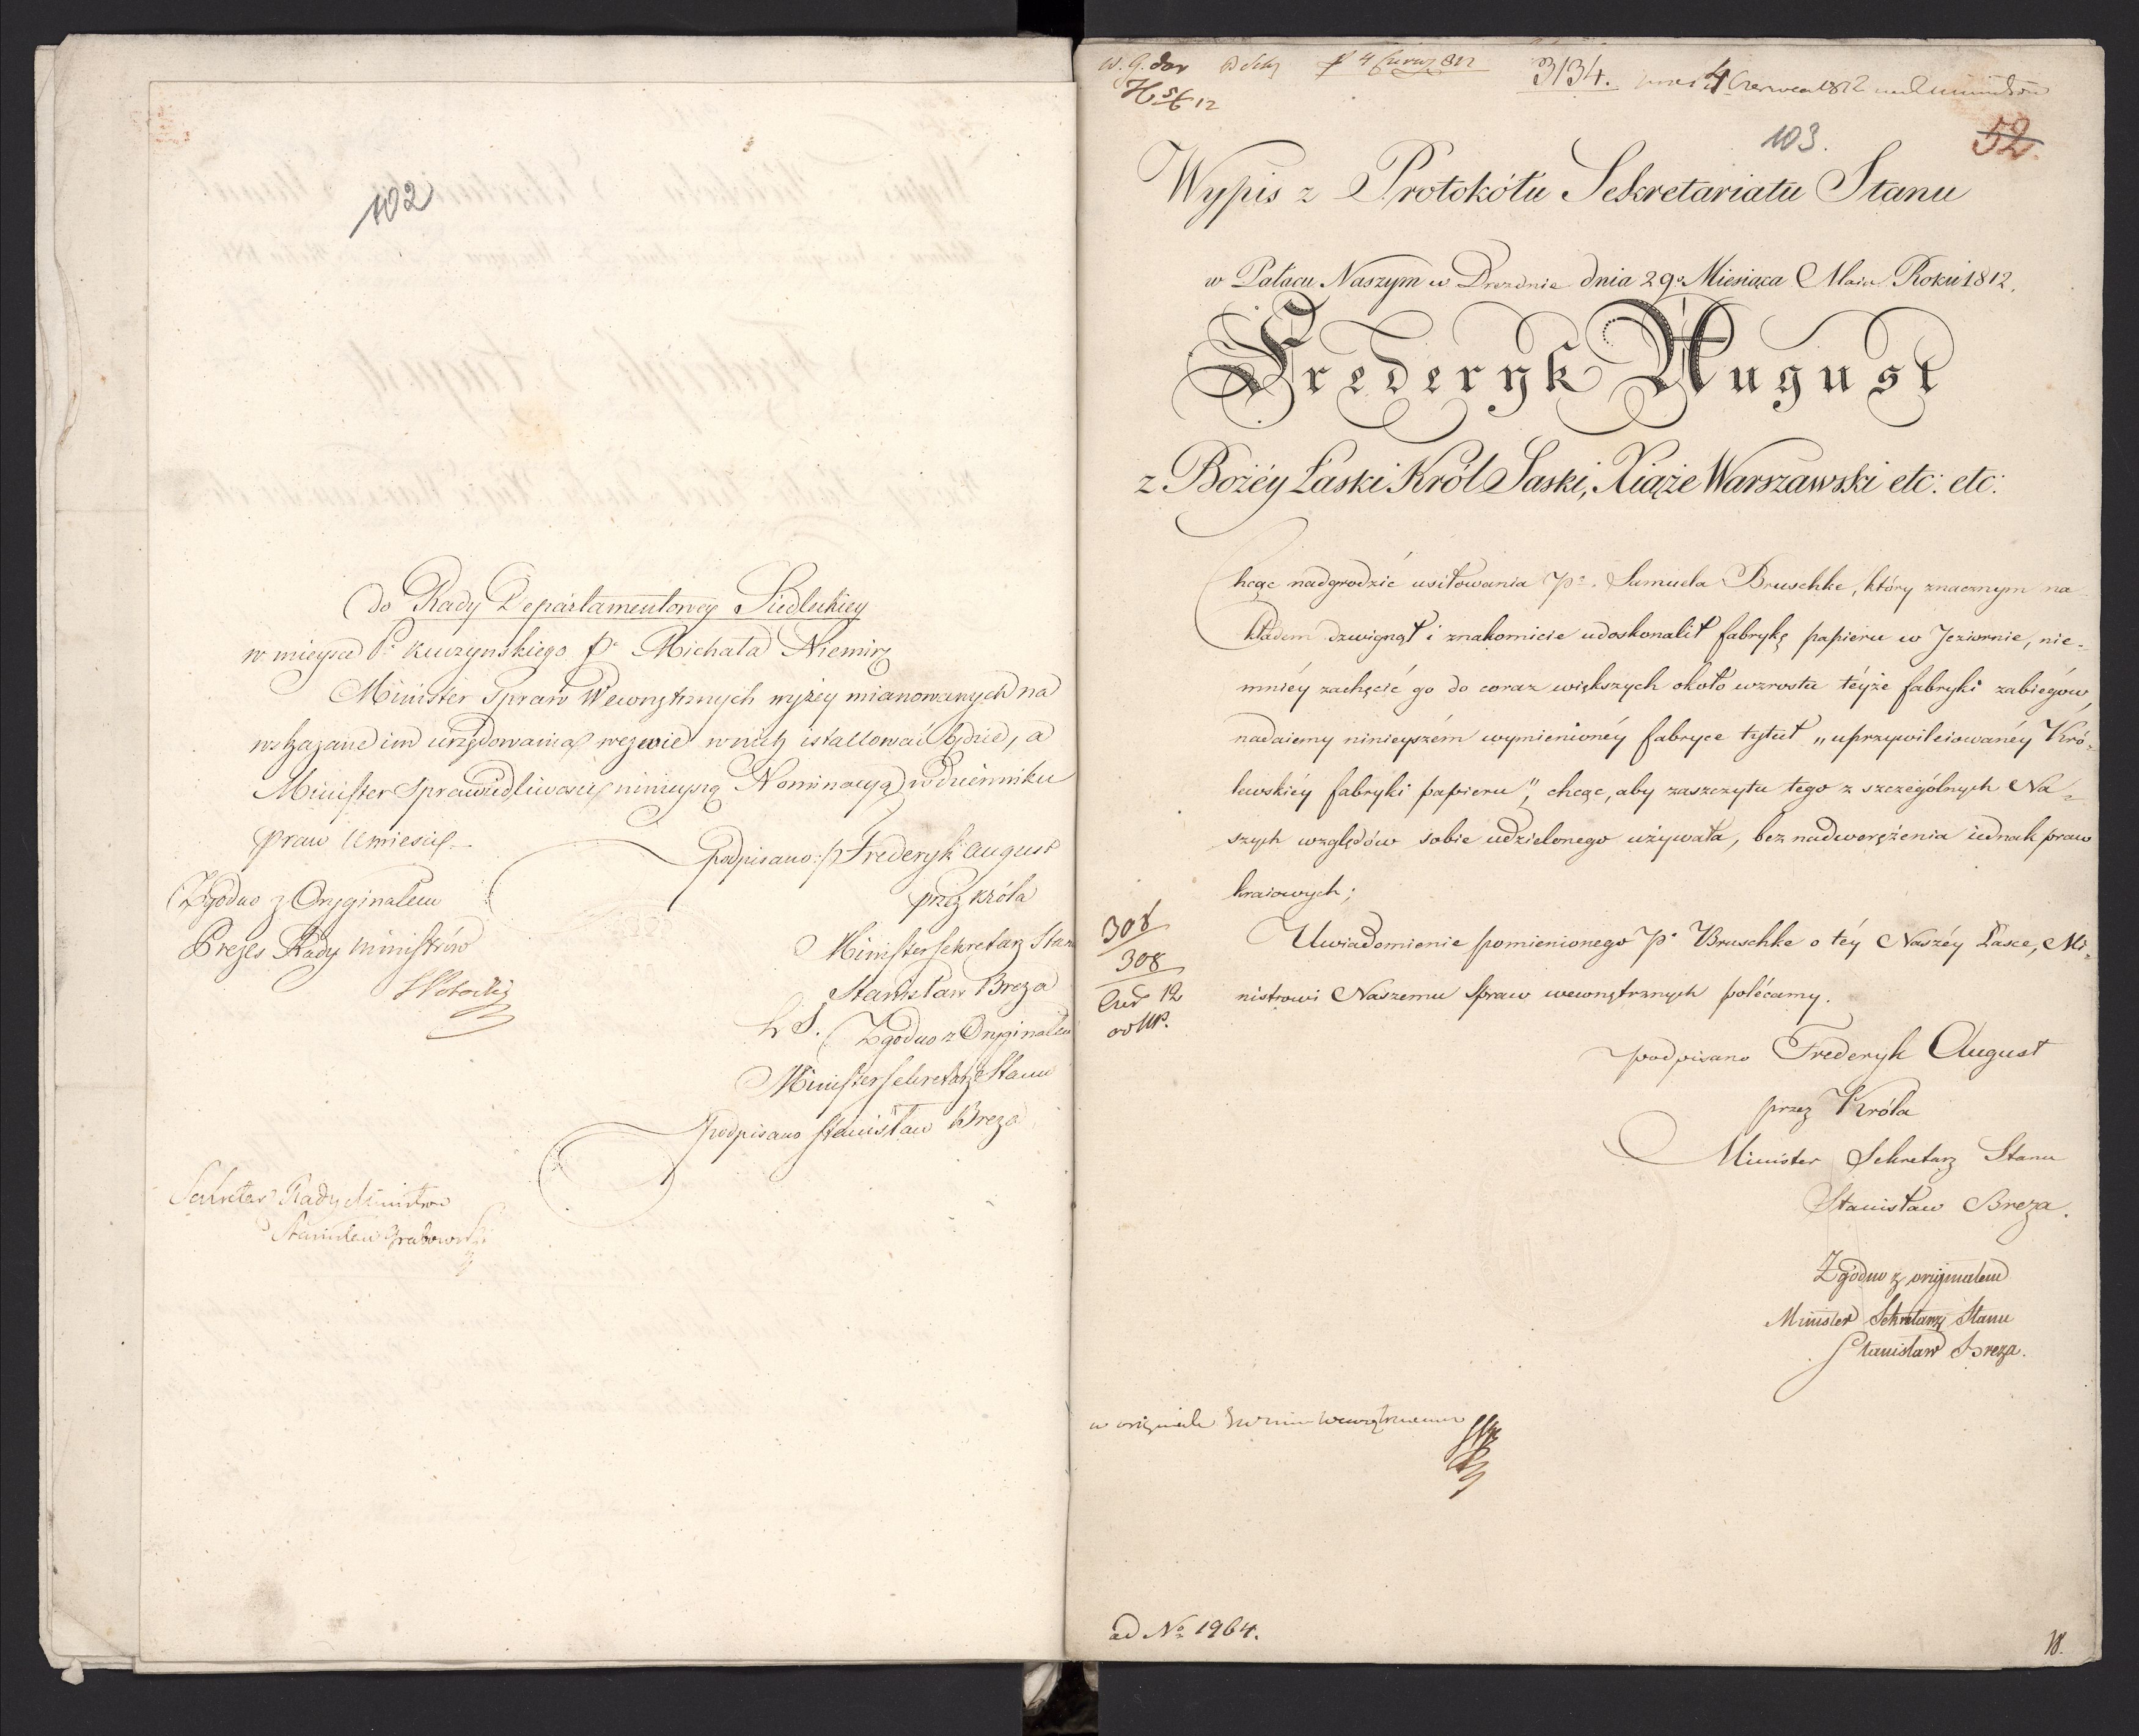 102
do Rady Departamentowey Siedleckiey
w mieysce Pa Kuczynskiego Pa Michała Niemirę
Minister Spraw Wewnętrznych wyżey mianowanych na
wskazane im urzędowania wezwie w nich istallować będzie, a
Minister Sprawiedliwości ninieyszą Nominacyą w dzienniku
praw umieści.
podpisano: Fryderyk August
Zgodno z Oryginałem
przez Króla
Prezes Rady Ministrów
Minister Sekretarz Stanu
Stanisław Breza
L S. Zgodno z Oryginałem
Minister Sekretarz Stanu
podpisano Stanisław Breza
Sekretarz Rady Ministrów
Stanisław Grabowski
4 Czerw 812
3134. 4 Czerwca 1812
103.
52.
Wypis z Protokółu Sekretariatu Stanu
w Pałacu Naszym w Dreznie dnia 29o Miesiąca Maia Roku 1812.
Frederyk August
z Bożéy Łaski Król Saski, Xiąże Warszawski etc: etc:
Chcąc nadgrodzić usiłowania Pa. Samuela Bruschke, który znacznym na-
kładem dzwignął i znakomicie udoskonalił fabrykę papieru w Jeziornie, nie-
mniéy zachęcić go do coraz większych około wzrostu téyże fabryki zabiegów,
nadaiemy ninieyszém wymienionéy fabryce tytuł „uprzywileiowanéy Kró-
lewskiéy fabryki papieru", chcąc, aby zaszczytu tego z szczególnych Na-
szych względów sobie udzielonego używała, bez nadwerężenia iednak praw
kraiowych;
Uwiadomienie pomienionego Pa Bruschke o téy Naszéy Łasce, Mi-
nistrowi Naszemu Spraw wewnętrznych polécamy.
308
308
12
podpisano Frederyk August
przez Króla
Minister Sekretarz Stanu
Stanisław Breza.
Zgodno z oryginałem
Minister Sekretarz Stanu
Stanisław Breza.
w originale
ad No 1964.